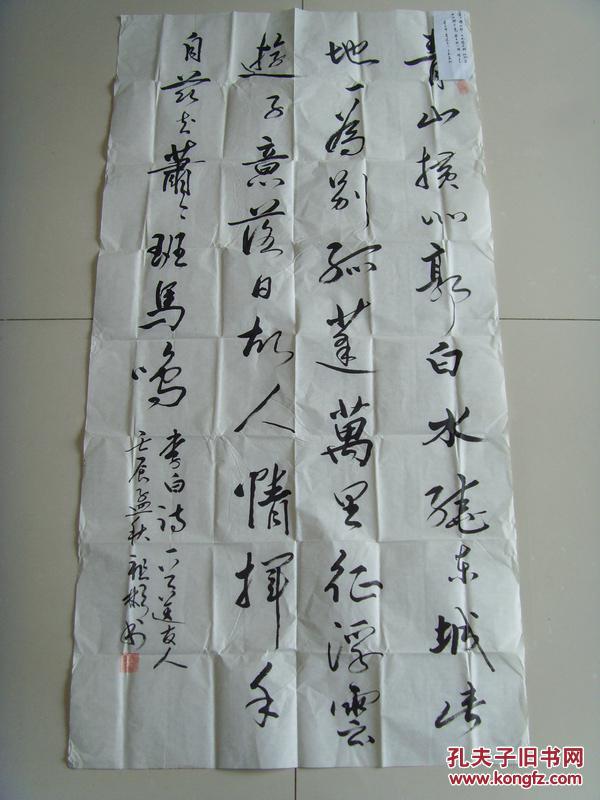 青山横北郭白水绕东城此
地一為别孤蓬萬里征浮雲
遊子意落日故人情揮手
自茲去蕭〻班馬鳴
李白诗一首送友人
壬辰孟秋祖彬书
孔夫子旧书网
www.kongfz.com